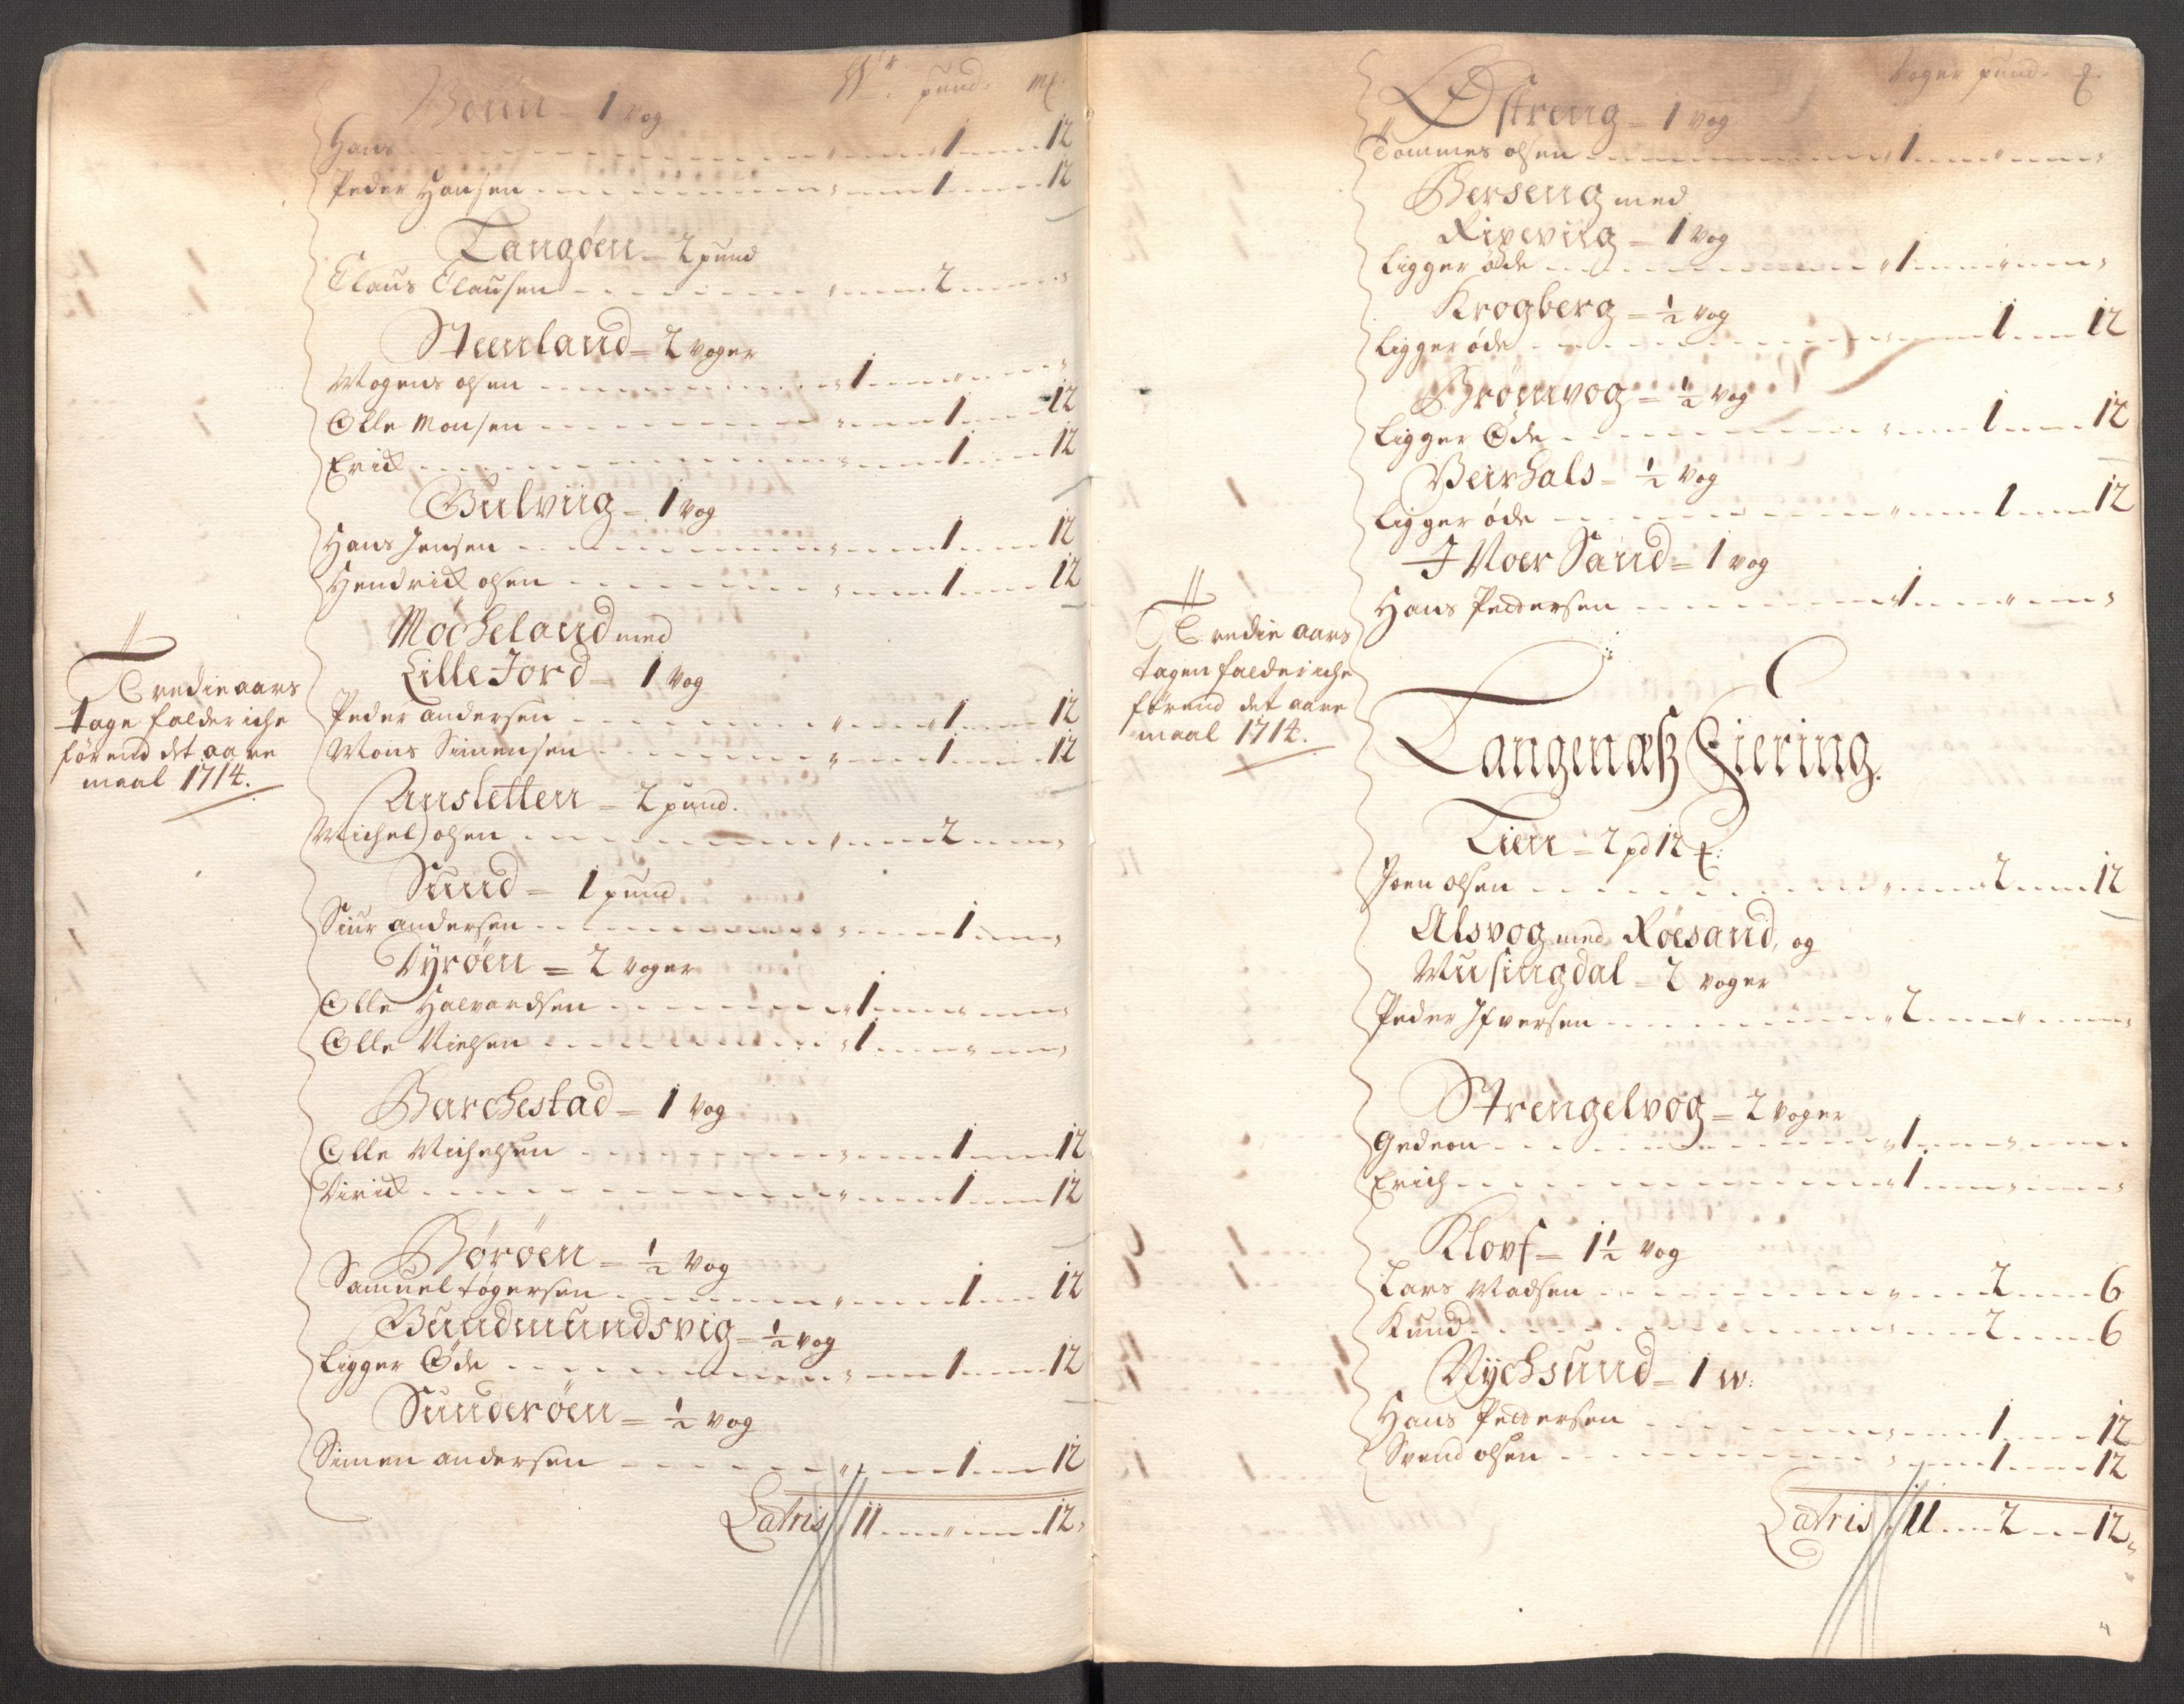 W: pund. mk.
Beun - 1 vog
Hans " 1 12
Peder Hansen " 1 12
Langøen - 2 pund
Claus Clausen " 2 "
Steenland = 2 voger
Mogens olsen 1 " "
Olle Monsen " 1 12
Erick " 1 12
Gulviig - 1 vog
Hans Jensen " 1 12
Hendrick olsen " 1 12
Mocheland med
Lille Jord - 1 vog
Peder andersen " 1 12
Mons Simensen " 1 12
Tredie aars
tage falder iche
førend det aare
maal 1714.
Ansletten = 2 pund.
Michel olsen " 2 "
Sund = 1 pund
Siur andersen " 1 "
Dyrøen = 2 voger
Olle Halvardsen 1 " "
Olle Nielsen 1 " "
Barchestad = 1 vog
Olle Michelsen " 1 12
Dirick " 1 12
Børøen = ½ vog
Samuel togersen " 1 12
Gundmundsvig = ½ vog
Ligger Øde " 1 12
Sunderøen = ½ vog
Simen andersen " 1 12
Latris 11 " 12
voger pund.
Østreng - 1 vog
Tommes olsen 1 " "
Berseng med
Ripeviig = 1 vog
Ligger øde 1 " "
Krogberg = ½ vog
Ligger øde " 1 12
Brønvog = ½ vog
Ligger Øde " 1 12
Veirhals = ½ vog
Ligger øde " 1 12
I Noer Sand = 1 vog
Hans Pedersen 1 " "
Tredie aars
tagen falder iche
førend det aare
maal 1714.
Langenæß Fiering.
Lien = 2 pd 12
Joen olsen " 2 12
Alsvog med Røesand, og
Musingdal = 2 voger
Peder Ifversen 2 " "
Strengelvog = 2 voger
Gedeon 1 " "
Erich 1 " "
Klovf = 1½ vog
Lars Madsen " 2 6
Knud " 2 6
Nychsund = 1 w:
Hans Pedersen " 1 12
Svend olsen " 1 12
Latris 11 2 12